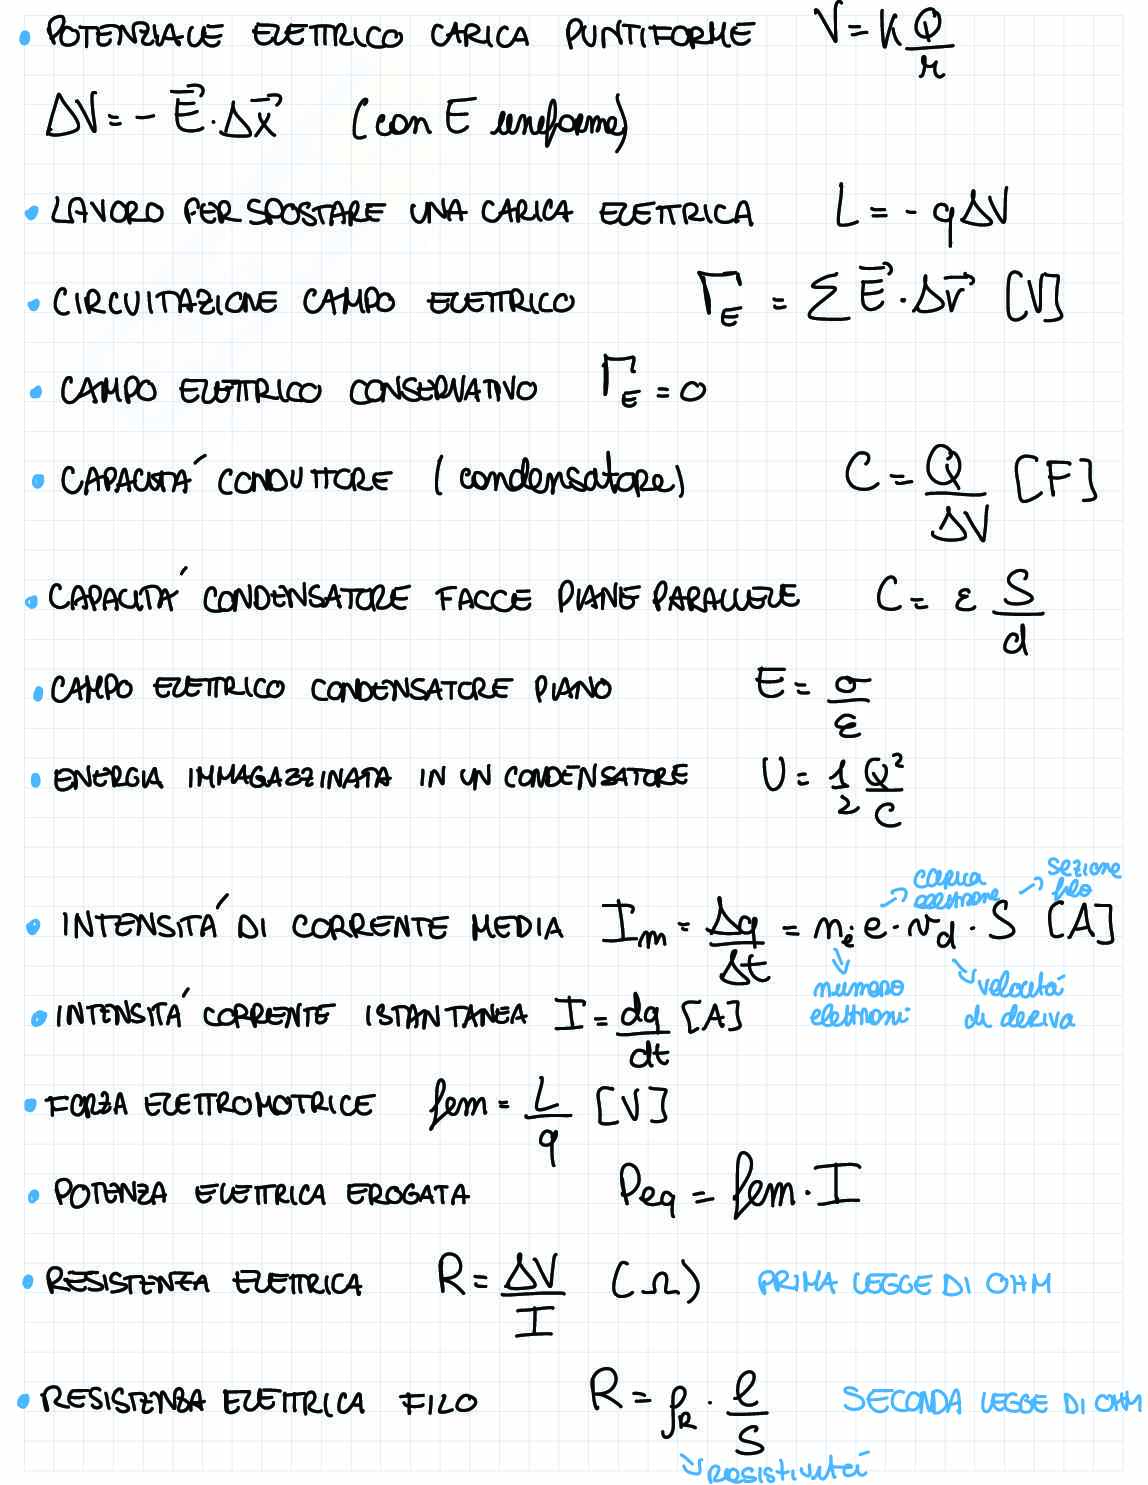 • POTENZIALE ELETTRICO CARICA PUNTIFORME V = K Q/r
ΔV = - E⃗ · Δx⃗ (con E uniforme)
• LAVORO PER SPOSTARE UNA CARICA ELETTRICA L = - qΔV
• CIRCUITAZIONE CAMPO ELETTRICO Γ_E = Σ E⃗ · Δr⃗ [V]
• CAMPO ELETTRICO CONSERVATIVO Γ_E = 0
• CAPACITÁ CONDUTTORE (condensatore) C = Q/ΔV [F]
• CAPACITÁ CONDENSATORE FACCE PIANE PARALLELE C = ε S/d
• CAMPO ELETTRICO CONDENSATORE PIANO E = σ/ε
• ENERGIA IMMAGAZZINATA IN UN CONDENSATORE U = 1/2 Q²/C
carica elettrone
sezione filo
• INTENSITÁ DI CORRENTE MEDIA I_m = Δq/Δt = n_e e · v_d · S [A]
numero elettroni
velocitá di deriva
• INTENSITÁ CORRENTE ISTANTANEA I = dq/dt [A]
• FORZA ELETTROMOTRICE fem = L/q [V]
• POTENZA ELETTRICA EROGATA P_eq = fem · I
• RESISTENZA ELETTRICA R = ΔV/I (Ω) PRIMA LEGGE DI OHM
• RESISTENZA ELETTRICA FILO R = ρ_R · l/S SECONDA LEGGE DI OHM
resistivitá